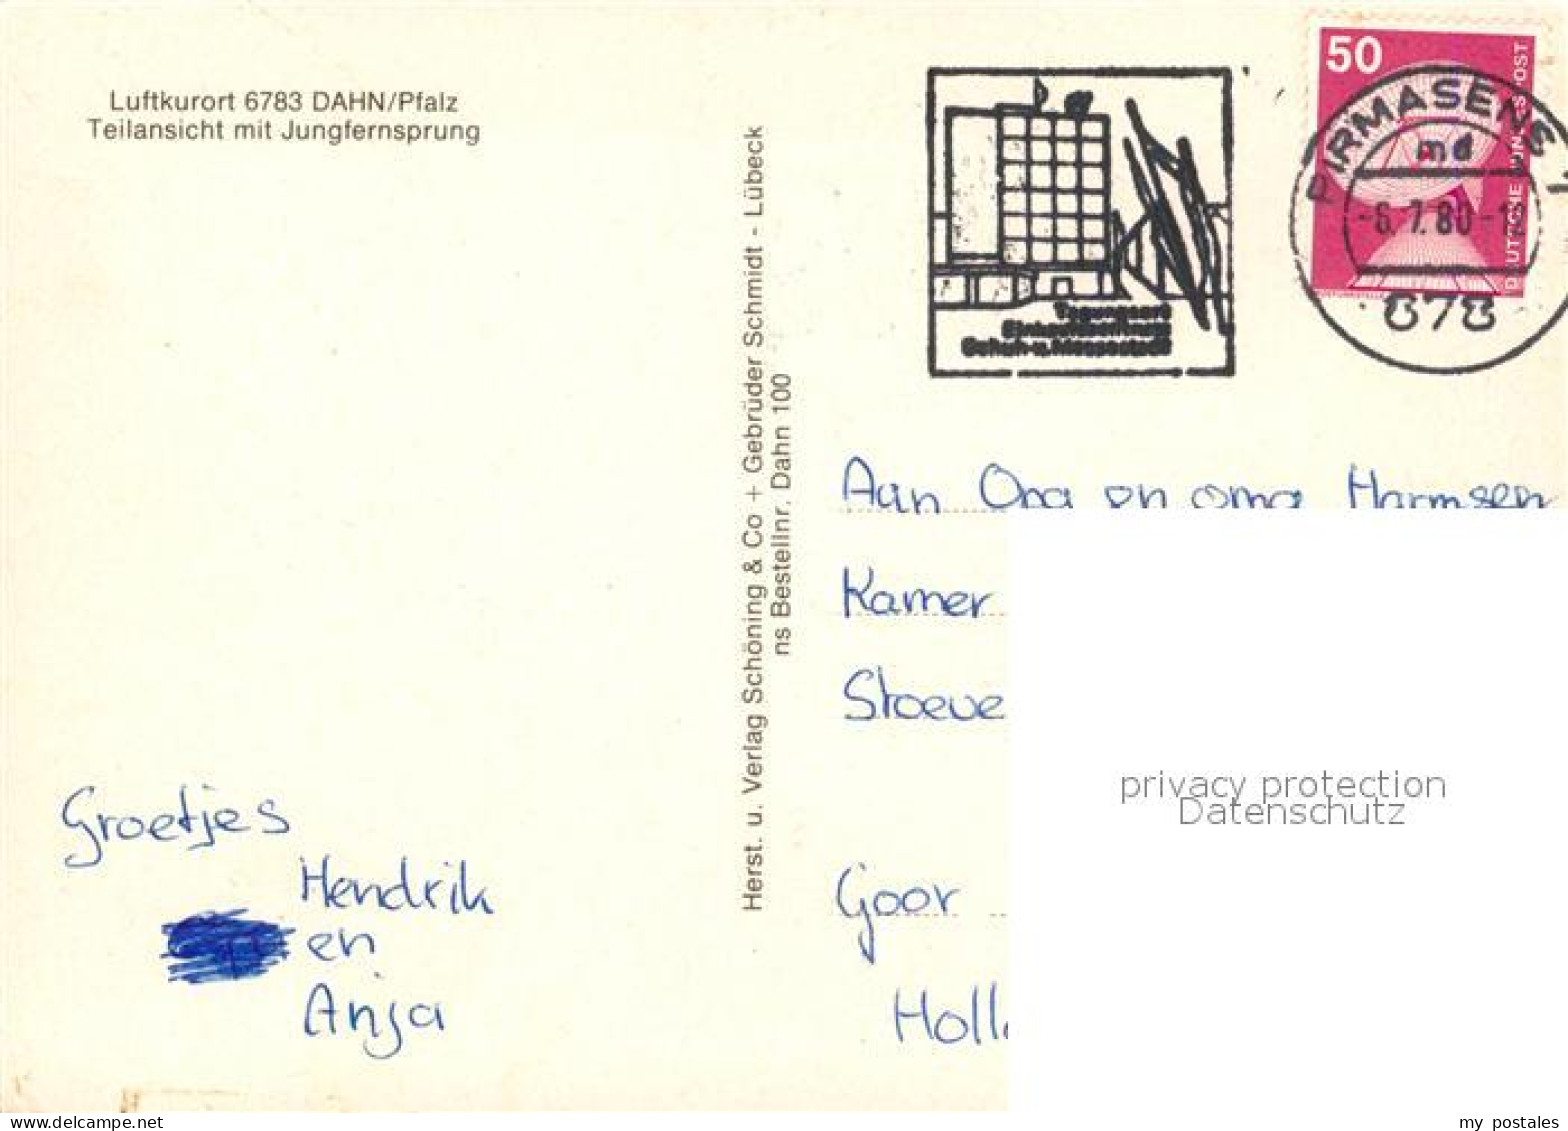 Luftkurort 6783 DAHN/Pfalz
Teilansicht mit Jungfernsprung
Herst. u. Verlag Schöning & Co + Gebrüder Schmidt - Lübeck
ns Bestellnr. Dahn 100
50
DEUTSCHE BUNDESPOST
PIRMASENS 1
md
-6.7.80-12
678
Tagungsort
Einkaufszentrum
Schuh-u.Messestadt
Aan Opa en oma Harmsen
Kamer
Stoeve
Goor
Holl
Groetjes
Hendrik
en
Anja
privacy protection
Datenschutz
my postales